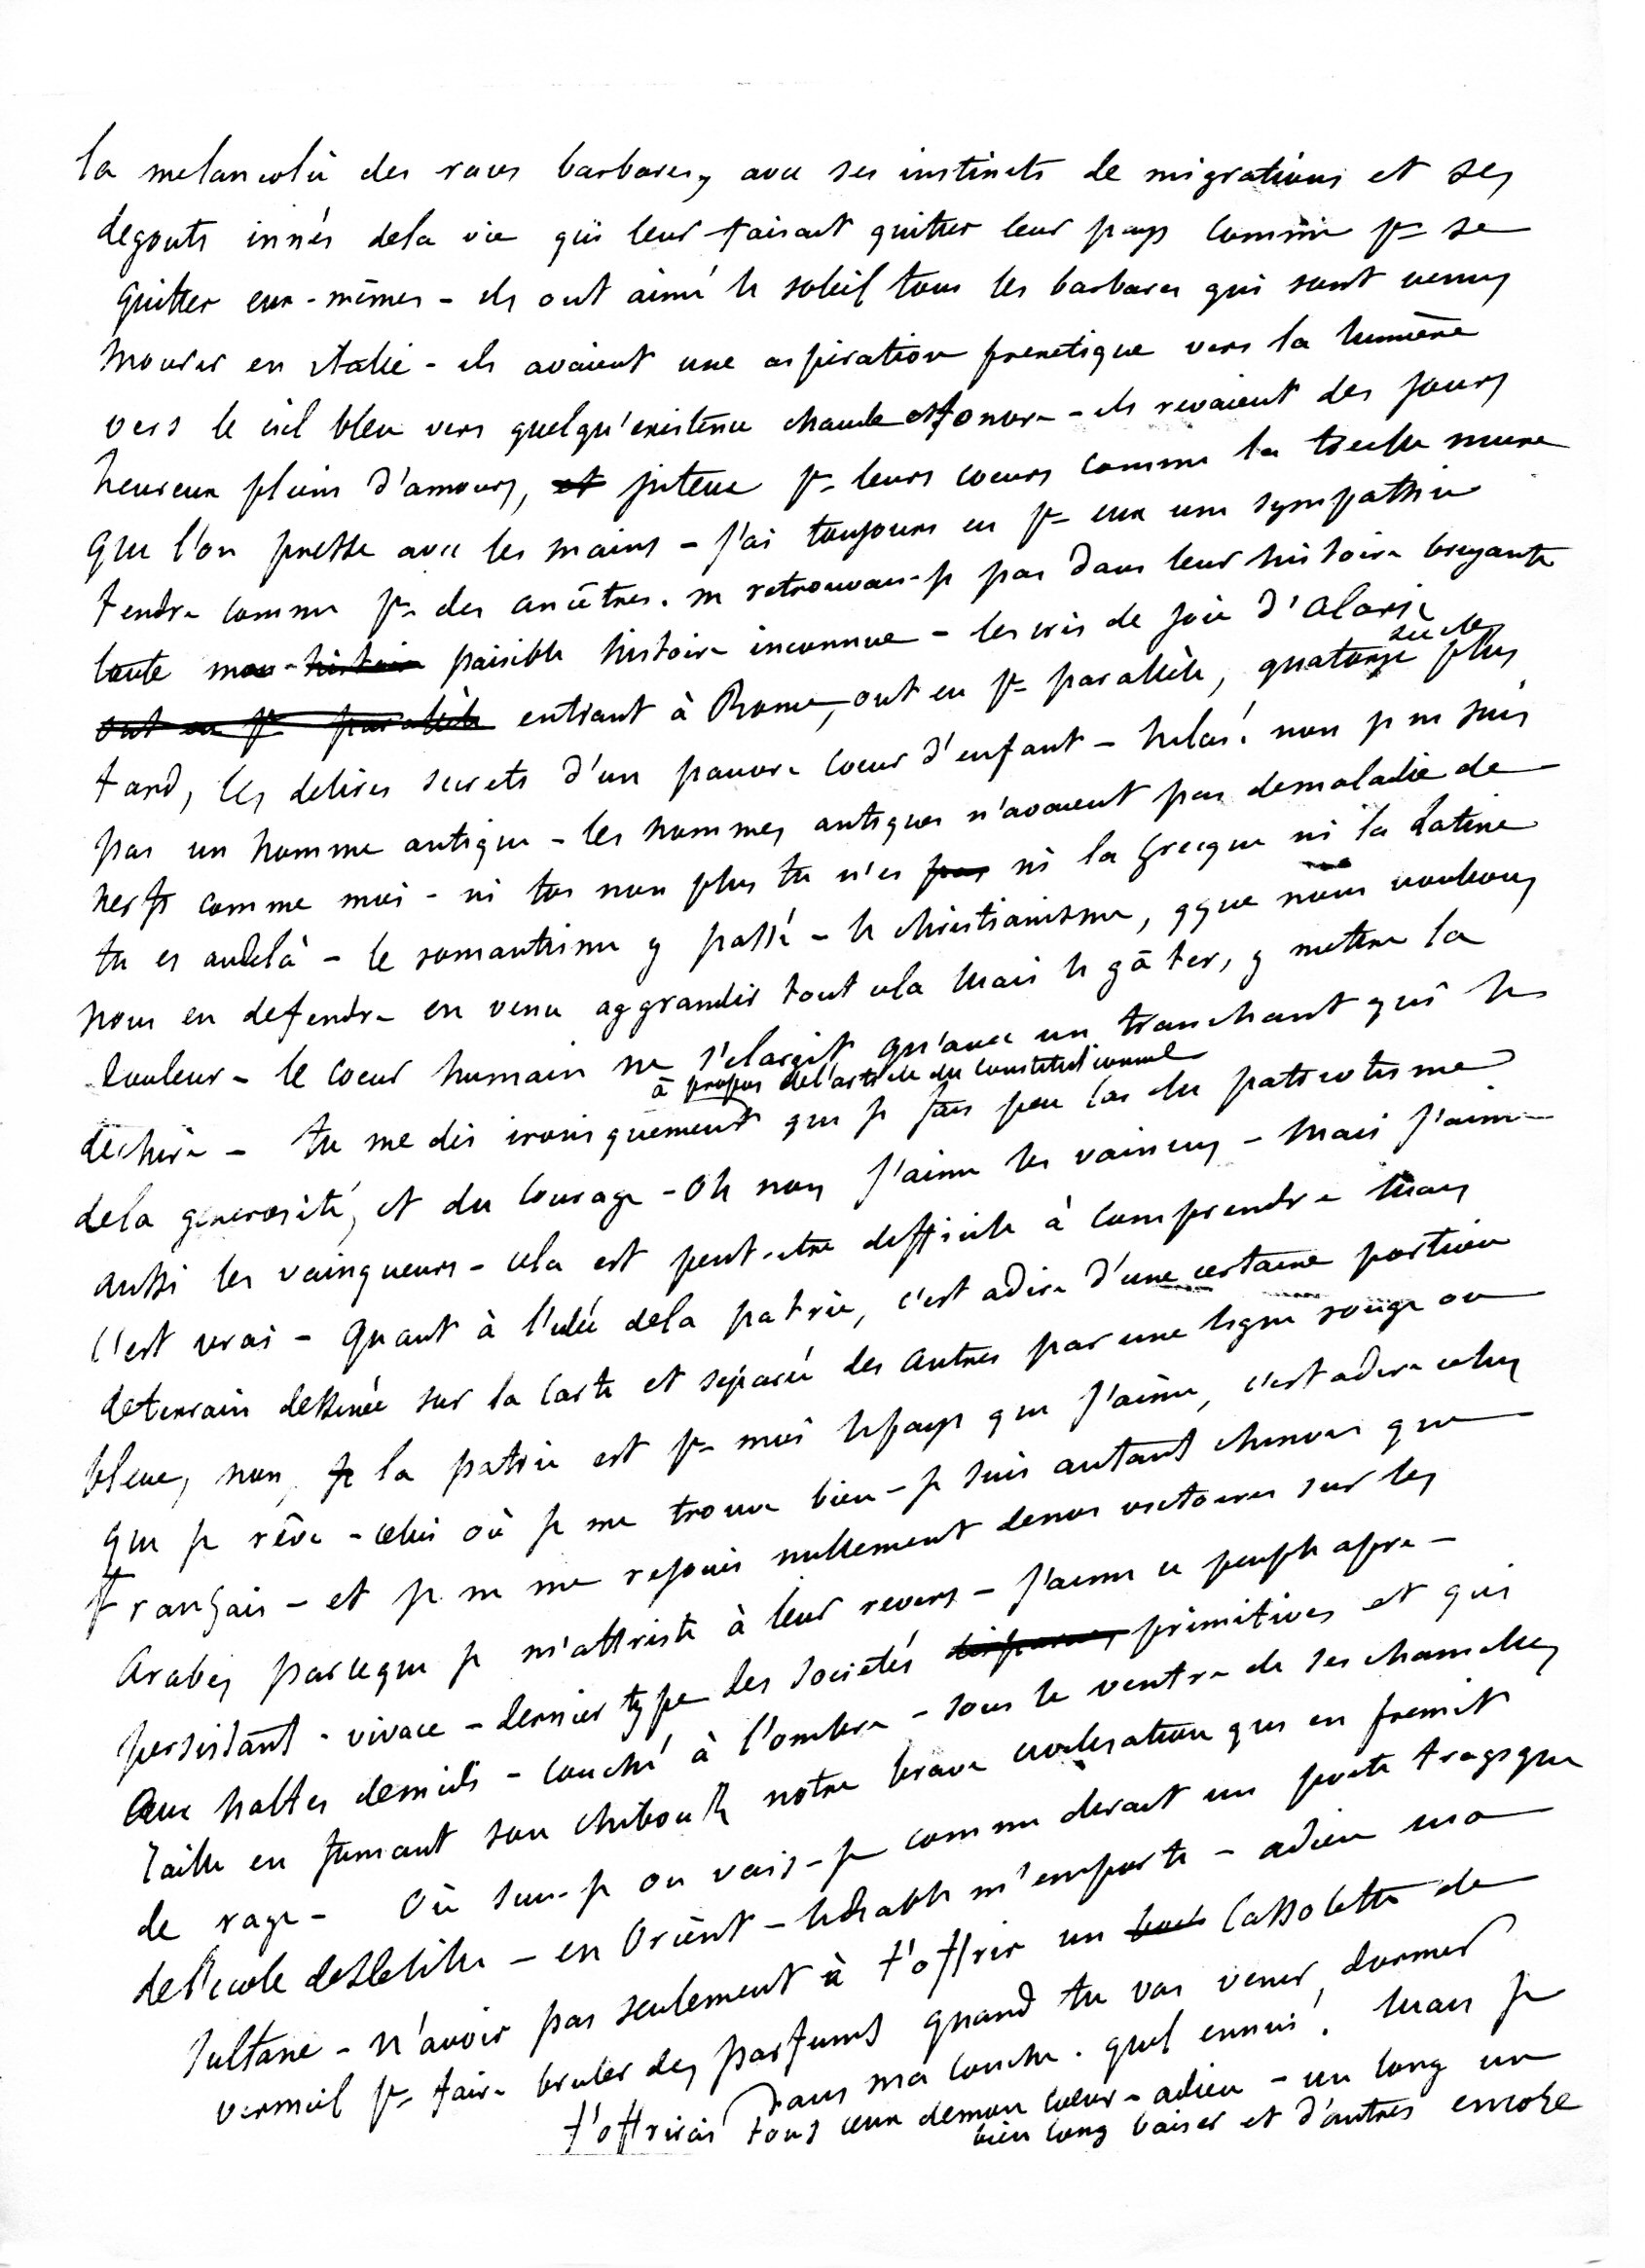 la melancolie des races barbares, avec ses instincts de migrations et ses
degouts innés dela vie qui leur faisait quitter leur pays comme pr se
quitter eux-mêmes - ils ont aimé le soleil tous les barbares qui sont venus
mourir en italie - ils avaient une aspiration frenetique vers la lumière
vers le ciel bleu vers quelqu'existence chaude et sonore - ils revaient des jours
heureux pleins d'amours, et juteux pr leurs coeurs comme la treille mure
que l'on presse avec les mains - j'ai toujours eu pr eux une sympathie
tendre comme pr des ancêtres. ne retrouvais-je pas dans leur histoire bruyante
toute mon histoire paisible histoire inconnue - les cris de joie d'alaric
ont eu pr parallèle entrant à Rome, ont eu pr parallèle, quatorze siècles plus
tard, les delires secrets d'un pauvre coeur d'enfant - helas! non je ne suis
pas un homme antique - les hommes antiques n'avaient pas demaladie de
nerfs comme moi - ni toi non plus tu n'es pas ni la grecque ni la latine
tu es audelà - le romantisme y passé - le christianisme, qque nous voulions
nous en defendre en venu aggrandir tout cela mais le gâter, y mettre la
douleur - le coeur humain ne s'elargit qu'avec un tranchant qui le
dechire - tu me dis ironiquement à propos del'article du constitutionnel que je fais peu cas du patriotisme
dela generosité, et du courage - oh non j'aime les vaincus - mais j'aime
aussi les vainqueurs - cela est peut-etre difficile à comprendre mais
c'est vrai - quant à l'idée dela patrie, c'est adire d'une certaine portion
deterrain dessinée sur la carte et séparée des autres par une ligne rouge ou
bleue, non, je la patrie est pr moi lepays que j'aime, c'est adire celui
que je rêve - celui où je me trouve bien - je suis autant chinois que
français - et je ne me rejouis nullement denos victoires sur les
arabes parceque je m'attriste à leur revers - j'aime ce peuple apre -
persistant - vivace - dernier type des societés disparues primitives et qui
aux haltes demidi - couché à l'ombre - sous le ventre de ses chamelles
raille en fumant son chibouk notre brave civilisation qui en fremit
de rage - Où suis-je ou vais-je comme dirait un poete tragique
del'ecole deDelille - en Orient - lediable m'emporte - adieu ma
sultane - n'avoir pas seulement à t'offrir un cassolette de
vermeil pr faire bruler des parfums quand tu vas venir, dormir
dans ma couche. quel ennui! mais je
t'offrirai tous ceux demon coeur - adieu - un long un
bien long baiser et d'autres encore